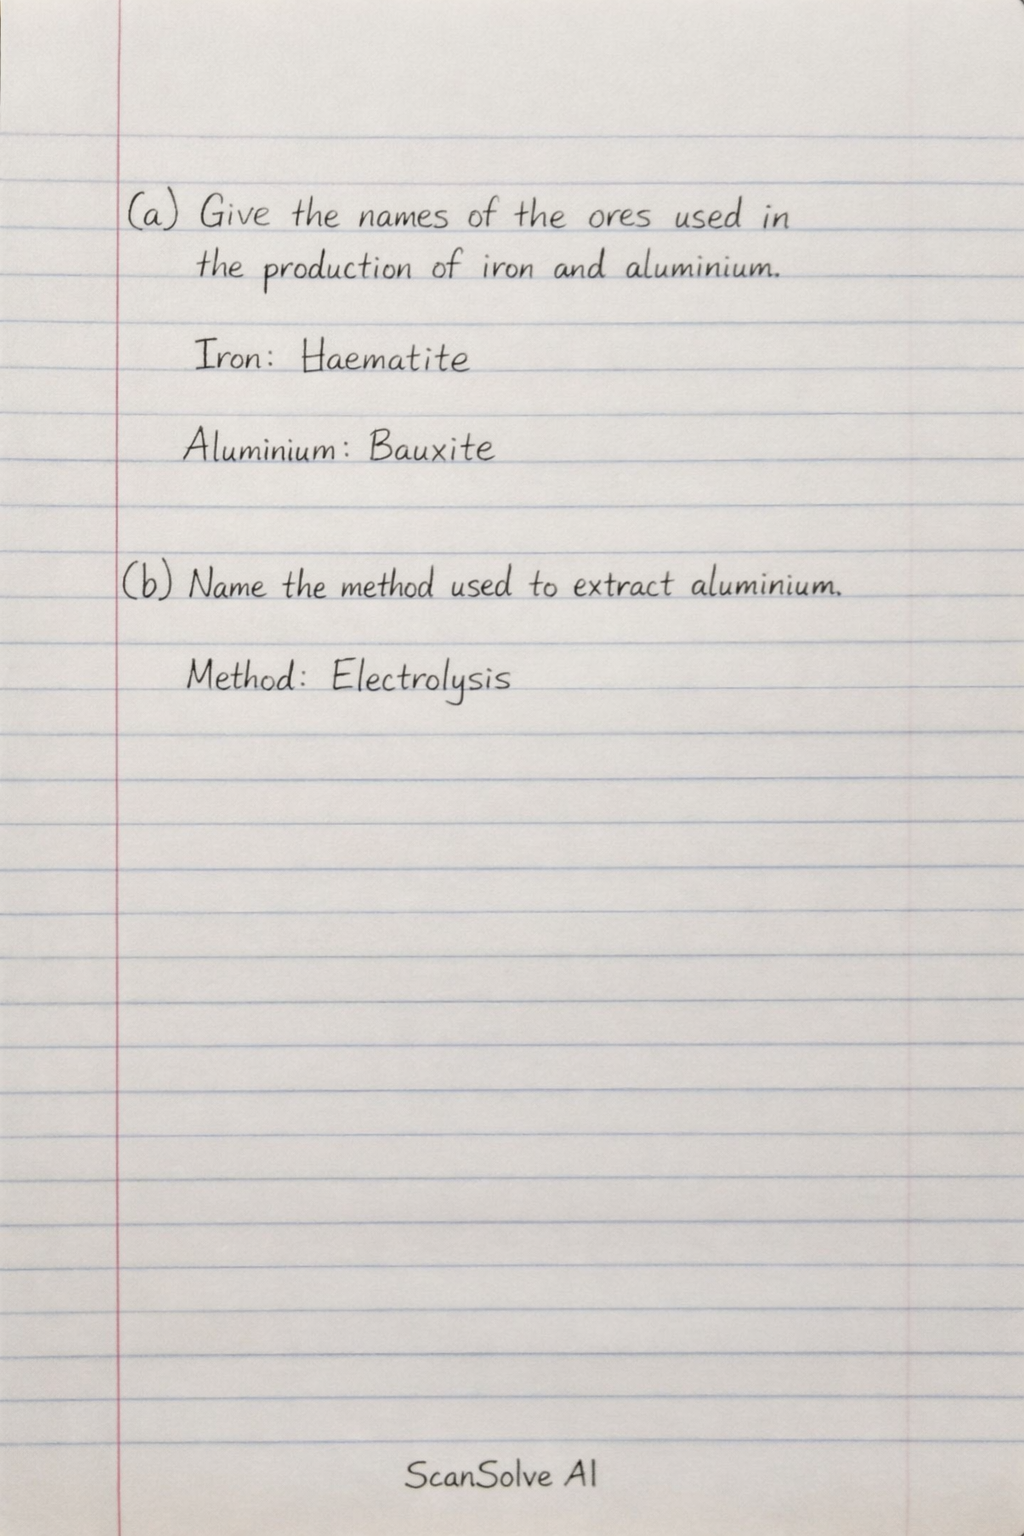 (a) Give the names of the ores used in
the production of iron and aluminium.
Iron: Haematite
Aluminium: Bauxite
(b) Name the method used to extract aluminium.
Method: Electrolysis
ScanSolve AI